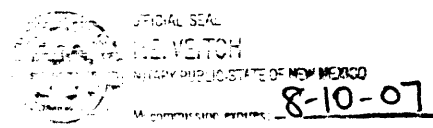 OFFICIAL SEAL
NOTARY PUBLIC-STATE OF NEW MEXICO
My commission expires: 8-10-07